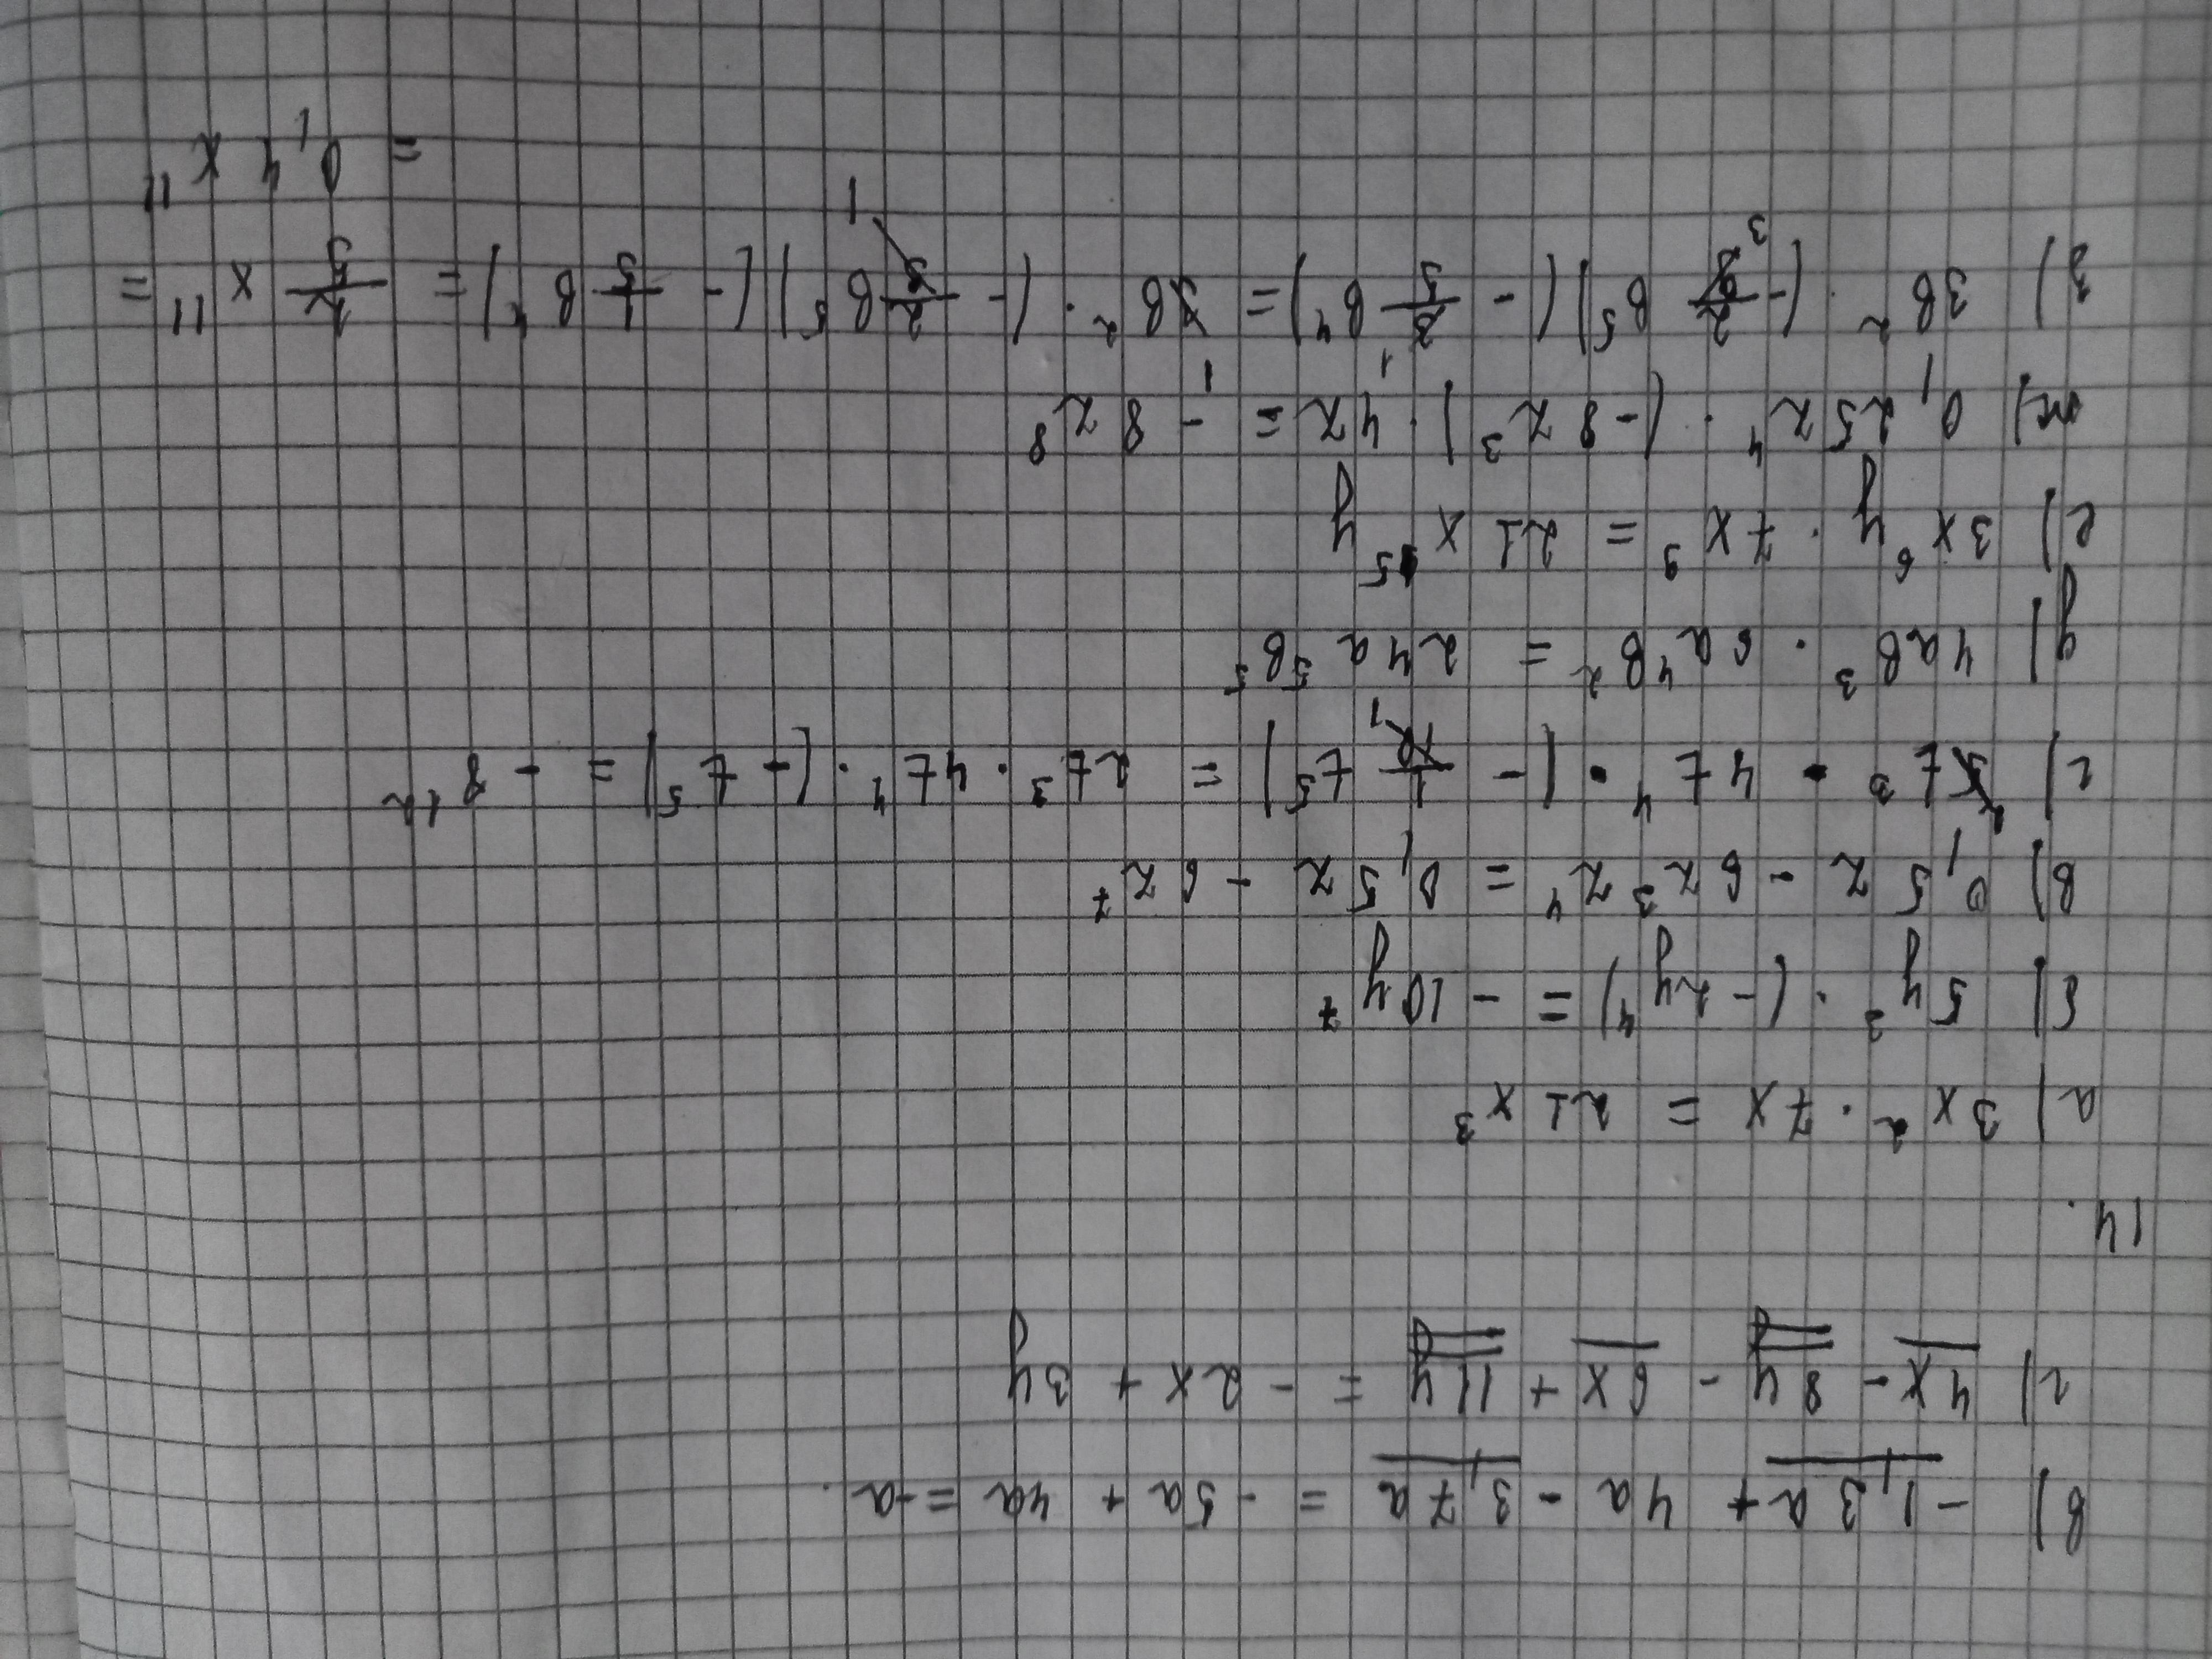 в) -1,3a + 4a - 3,7a = -5a + 4a = -a.
г) 4x - 8y - 6x + 11y = -2x + 3y
14.
a) 3x² · 7x = 21x³
б) 5y³ · (-2y⁴) = -10y⁷
в) 0,5z - 6z³z⁴ = 0,5z - 6z⁷
г) t³ · 4t⁴ · (- t⁵) = 2t³ · 4t⁴ · (-t⁵) = -8¹²
д) 4aв³ · 6a⁴в² = 24a⁵в⁵
е) 3x⁶y · 7x⁹ = 21x¹⁵y
ж) 0,25z⁴ · (-8z³) · 4z = -8z⁸
з) 3в² · (-2/9 в⁵)(-3/5 в⁴) = 3в² · (-2/3 в⁵)(-1/5 в⁴) = 2/5 x¹¹ =
= 0,4x¹¹